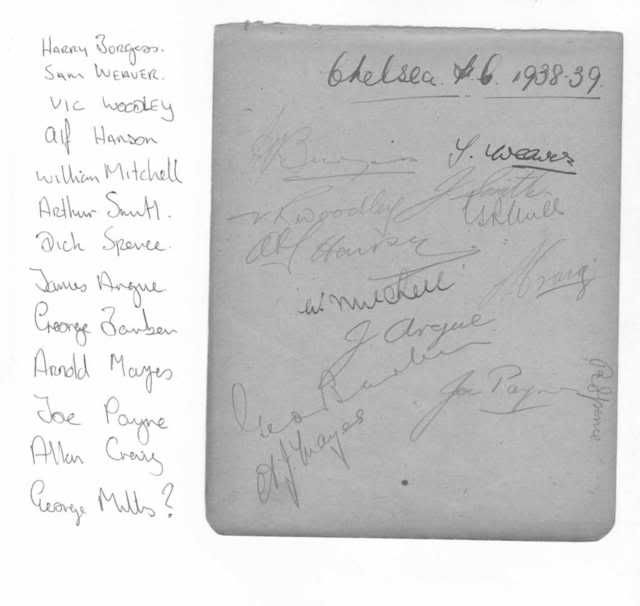 Harry Borgess.
Sam Weaver.
Vic Woodley
Alf Hanson
William Mitchell
Arthur Smith.
Dick Spence.
James Argue
George Barber
Arnold Mayes
Joe Payne
Allan Craig
George Mills?
Chelsea F.C. 1938-39.
Burgess
S. Weaver
V R Woodley
J Smith
Alf Hanson
W. Mitchell
Craig
J Argue
Geo Barber
Joe Payne
A J Mayes
R Spence